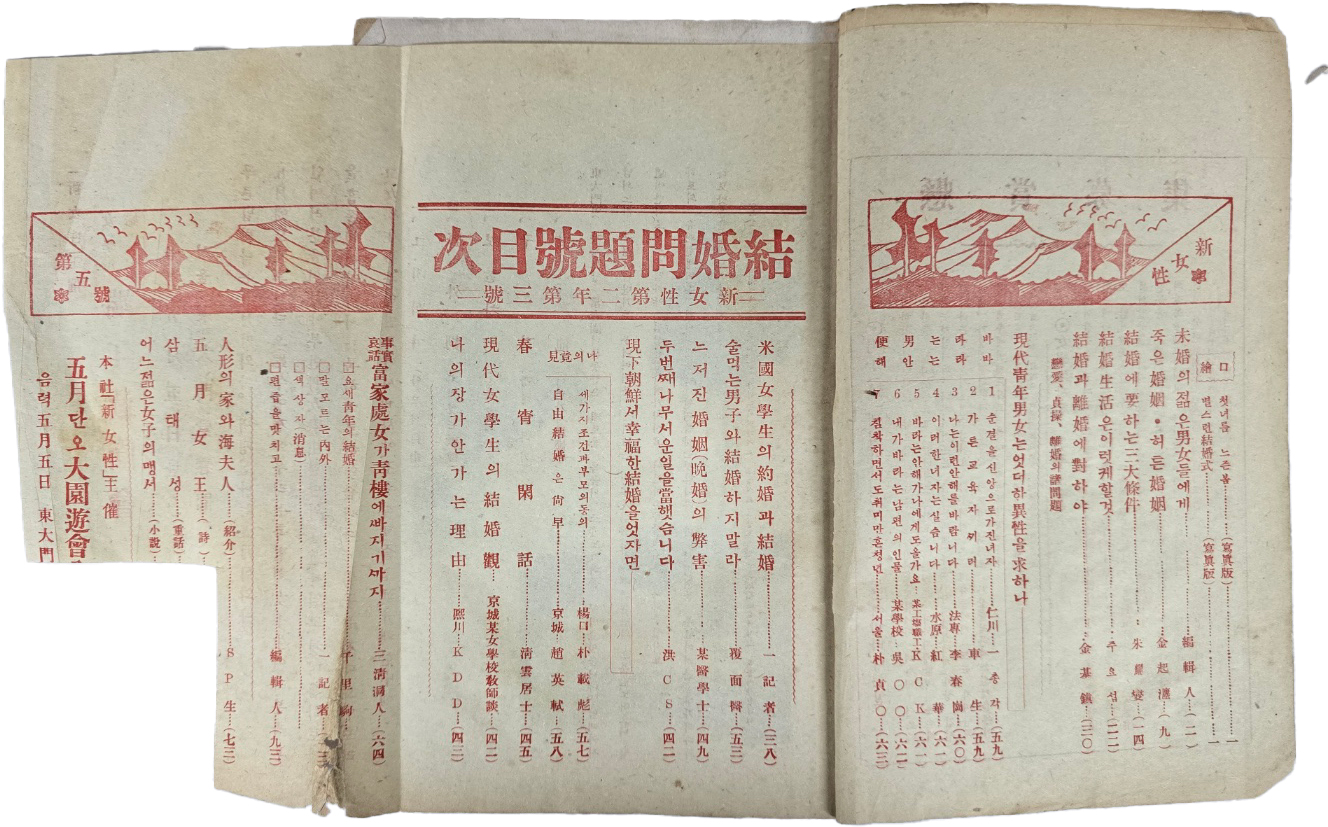 新女性
口繪
첫녀름 느즌봄………(寫眞版)……一
별스런結婚式………(寫眞版)……一
未婚의젊은男女들에게………編輯人…(二)
죽은婚姻・허튼婚姻………金起瀍…(九)
結婚에要하는三大條件………(一四)
結婚生活은이럿케할것………주요섭…(二二)
結婚과離婚에對하야………金基鎭…(三〇)
戀愛、貞操、離婚의諸問題
現代靑年男女는엇더하異性을求하나
바라는남편
바라는안해
1 순결을신앙으로가진녀자…仁川一총각…(五九)
2 가튼교육자끼리………車生…(五九)
3 나는이런안해를바랍니다…法專李春崗…(六〇)
4 이러한녀자는실습니다…水原紅華…(六一)
5 바라는안해가나에게도올가요 某工塲職工K C K…(六一)
6 내가바라는남편의인물…某學校吳〇〇…(六二)
7 침착하면서도취미만흔청년……서울朴貞〇…(六三)
結婚問題號目次
新女性第二年第三號
米國女學生의約婚과結婚………一記者…(三八)
술먹는男子와結婚하지말라………覆面醫…(五三)
느저진婚姻(晩婚)의弊害………某醫學士…(四九)
두번째나무서운일을當햇슴니다………洪C S…(四二)
現下朝鮮서幸福한結婚을엇자면
나의意見
세가지조건과부모의동의………楊口朴載彪…(五七)
自由結婚은尙早………京城趙英軾…(五八)
春宵閑話………淸雲居士…(四五)
現代女學生의結婚觀…京城某女學校敎師談…(四二)
나의장가안가는理由………熙川K D D…(四三)
第五號
事實哀話 富家處女가靑樓에빠지기까지………三淸洞人…(六四)
□요새靑年의結婚
□말모르는內外………一記者
□색상자消息
□편즙을맛치고………編輯人…(九三)
人形의家와海夫人……(紹介)………S P生…(七三)
五月女王……(詩)
삼태성……(童話)
어느젊은女子의맹서……(小說)
本社「新女性」主催
五月단오大園遊會
음력五月五日 東大門